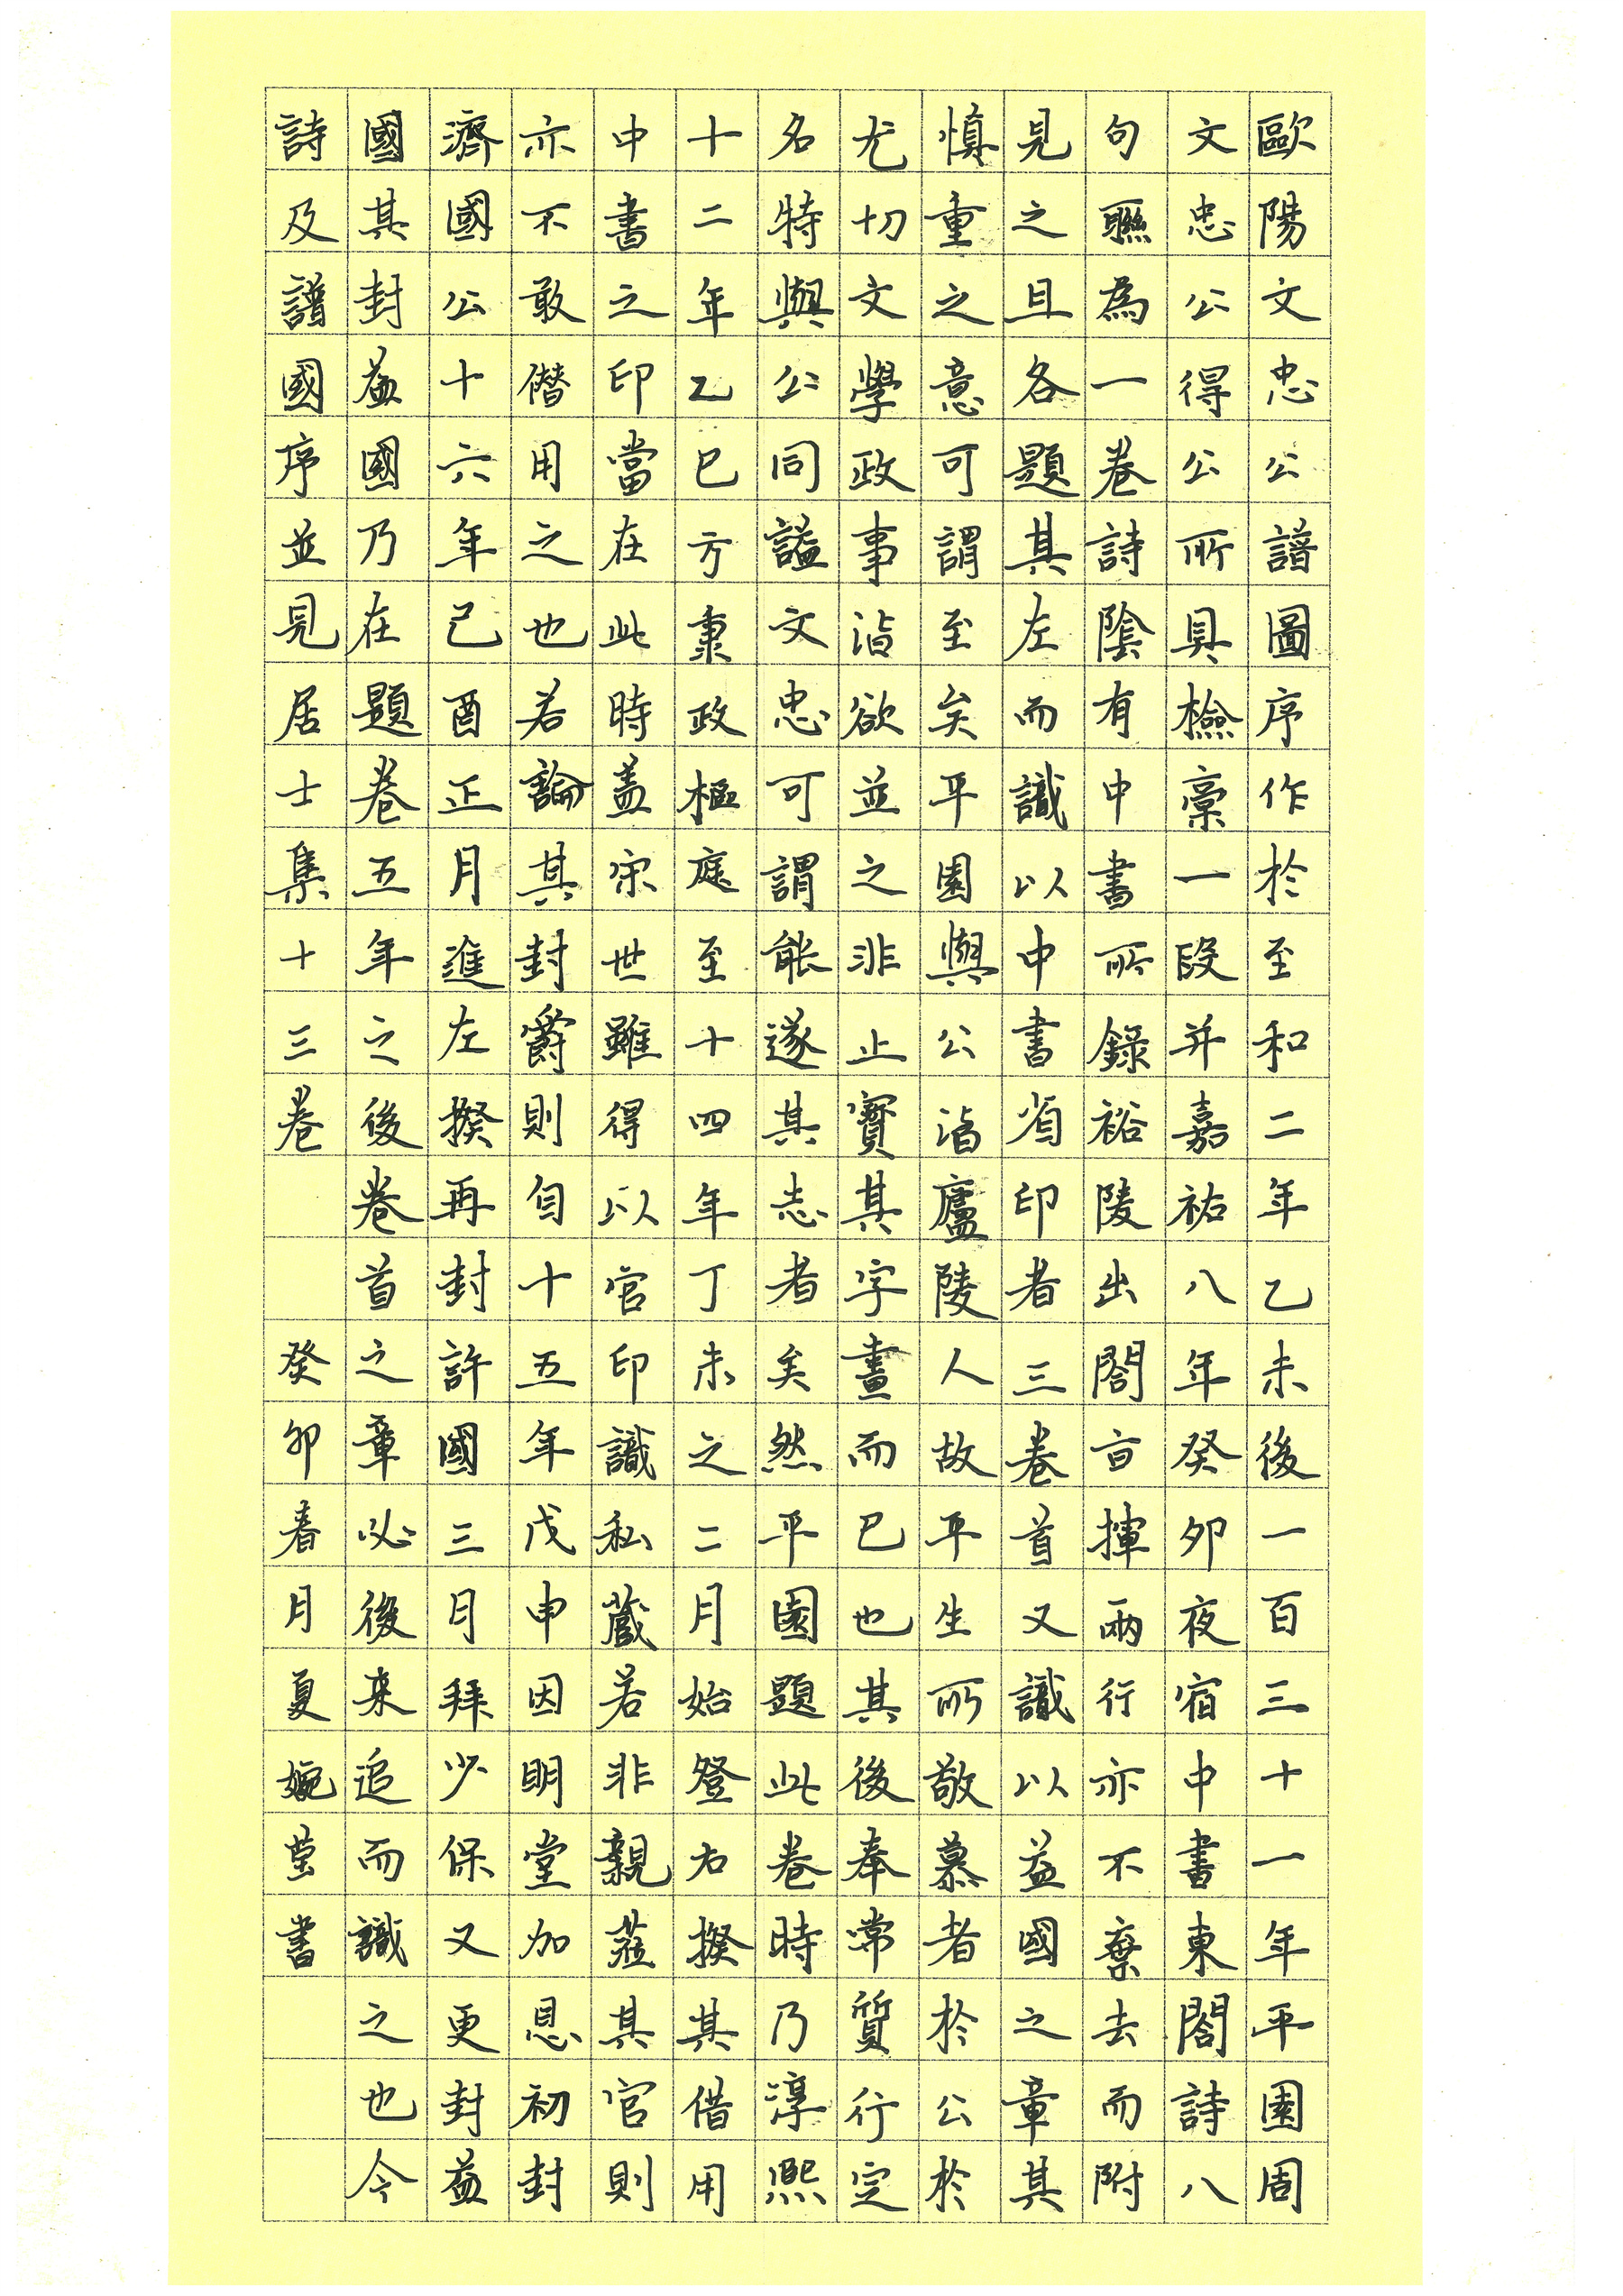 歐陽文忠公譜圖序作於至和二年乙未後一百三十一年平園周
文忠公得公所具檢稾一段并嘉祐八年癸卯夜宿中書東閣詩八
句聯為一卷詩陰有中書所錄裕陵出閣亩揮兩行亦不棄去而附
見之且各題其左而識以中書省印者三卷首又識以益國之章其
慎重之意可謂至矣平園與公㳙廬陵人故平生所敬慕者於公於
尤切文學政事㳙欲並之非止寶其字畫而已也其後奉常質行定
名特與公同謚文忠可謂能遂其志者矣然平園題此卷時乃淳熙
十二年乙巳方秉政樞庭至十四年丁未之二月始登右揆其借用
中書之印當在此時蓋宋世雖得以官印識私藏若非親蒞其官則
亦不敢僭用之也若論其封爵則自十五年戊申因明堂加恩初封
濟國公十六年己酉正月進左揆再封許國三月拜少保又更封益
國其封益國乃在題卷五年之後卷首之章必後来追而識之也今
詩及譜國序並見居士集十三卷
癸卯春月夏婉莹書